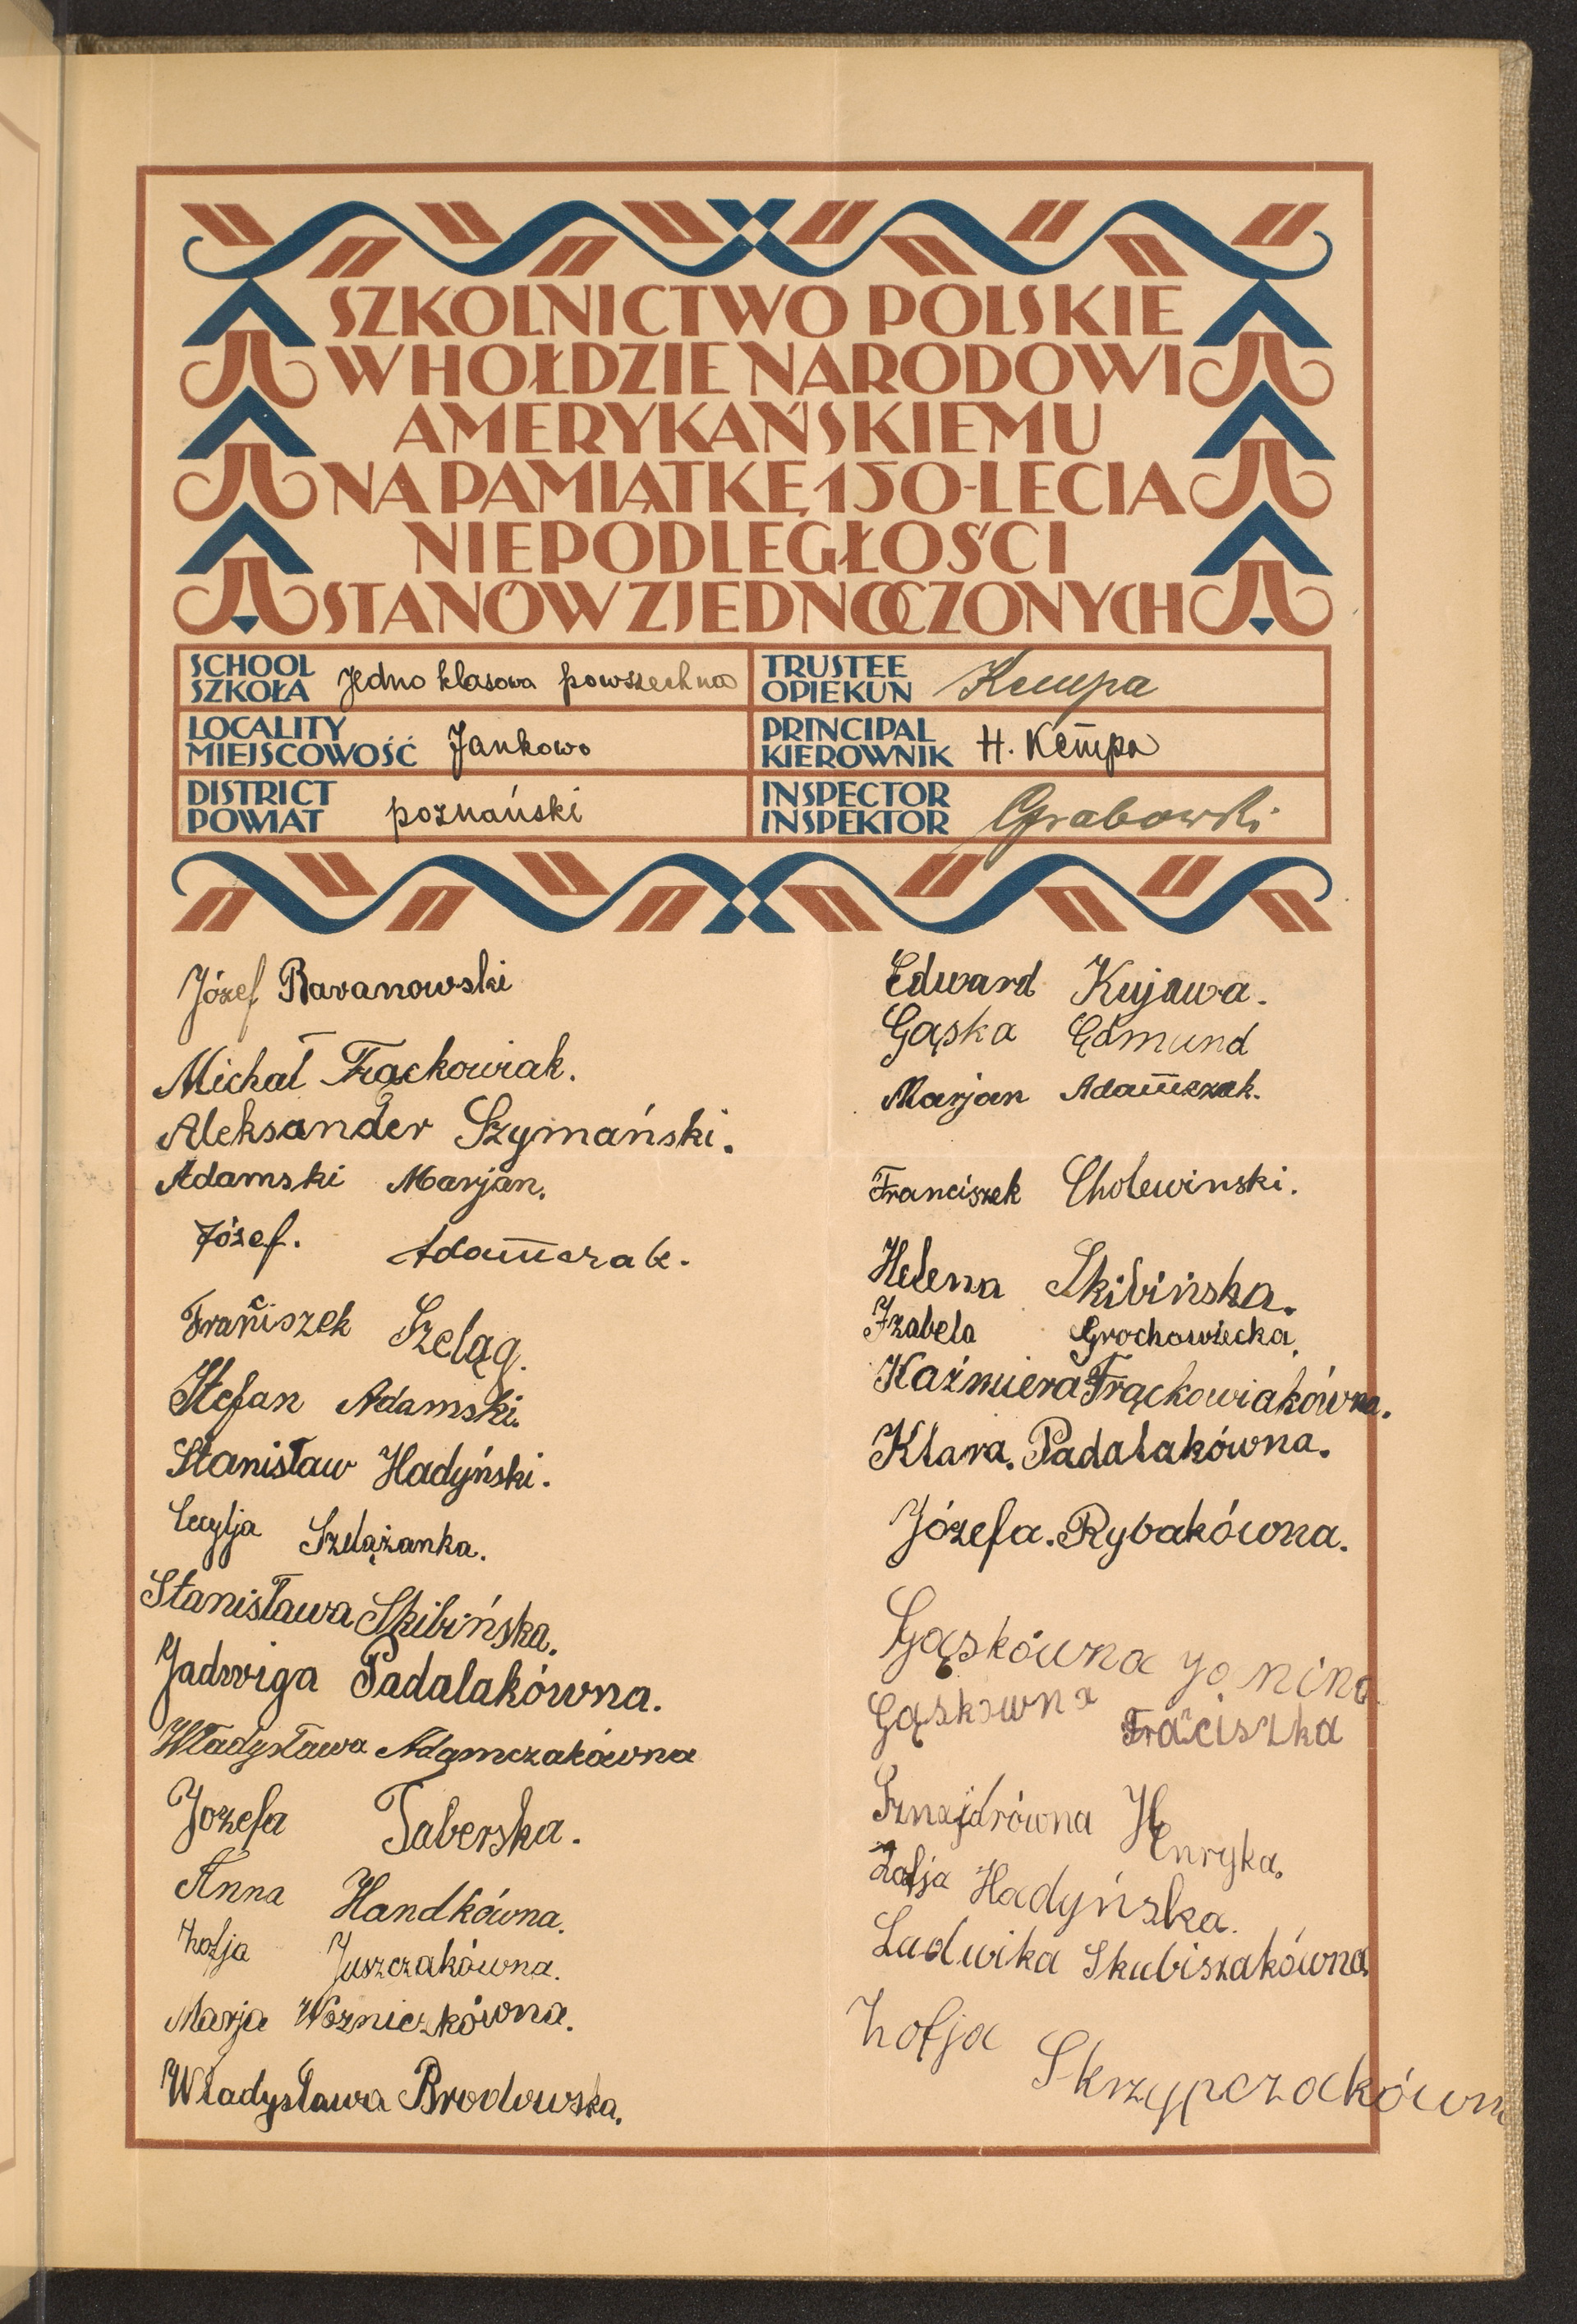 SZKOLNICTWO POLSKIE
W HOŁDZIE NARODOWI
AMERYKAŃSKIEMU
NA PAMIĄTKĘ 150-LECIA
NIEPODLEGŁOŚCI
STANÓW ZJEDNOCZONYCH
SCHOOL
SZKOŁA
Jedno klasowa powszechna
TRUSTEE
OPIEKUN
Kempa
LOCALITY
MIEJSCOWOŚĆ
Jankowo
PRINCIPAL
KIEROWNIK
H. Kempa
DISTRICT
POWIAT
poznański
INSPECTOR
INSPEKTOR
Grabowski
Józef Baranowski
Michał Frąckowiak.
Aleksander Szymański.
Adamski Marjan.
Józef. Adamczak.
Franciszek Szeląg.
Stefan Adamski.
Stanisław Hadyński.
Cecylja Szelążanka.
Stanisława Skibińska.
Jadwiga Padalakówna.
Władysława Adamczakówna
Jozefa Taberska.
Anna Handkówna.
Zofja Juszczakówna.
Marja Wozniczkówna.
Władysława Brodowska.
Edward Kujawa.
Gąska Edmund
Marjan Adamczak.
Franciszek Cholewinski.
Helena Skibińska.
Izabela Grochowiecka.
Kaźmiera Frąckowiakówna.
Klara. Padalakówna.
Józefa. Rybakówna.
Gąskówna Janina
Gąskówna Franciszka
Sznajdrówna Henryka.
Zofja Hadyńska.
Ludwika Skubiszakówna
Zofja Skrzypczakówna